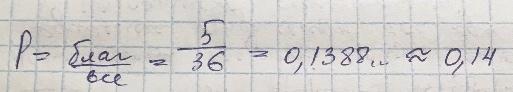 P = благ/все = 5/36 = 0,1388.. ≈ 0,14